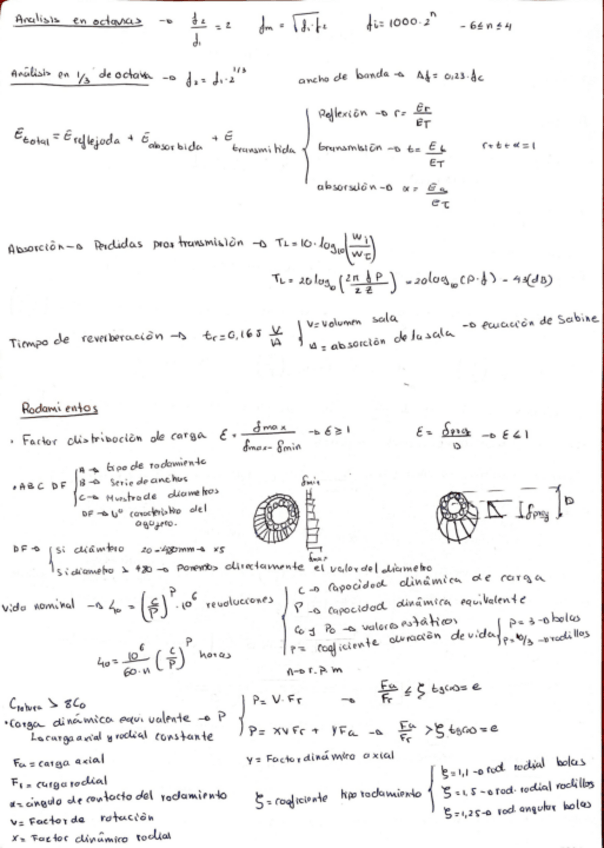 Analisis en octavas → f2/f1 = 2 fm = √f1·f2 fi = 1000·2^n -6≤n≤4
Análisis en 1/3 de octava → f2 = f1·2^1/3 ancho de banda → Δf = 0,23·fc
Reflexión → r = Er/ET
Ētotal = Ēreflejada + Ēabsorbida + Ētransmitida transmisión → t = Et/ET r+t+α=1
absorsión → α = Ea/eT
Absorción → Perdidas pros transmisión → TL = 10·log10(Wi/Wt)
TL = 20log10(2π f P / 2Z) = 20log10(P·f) - 43(dB)
Tiempo de reverberación → tr = 0,163 V/A { V = volumen sala
A = absorción de la sala → ecuación de Sabine
Rodamientos
· Factor distribución de carga ε = δmax/δmax-δmin → ε ≥ 1 ε = δproy/D → ε < 1
A → tipo de rodamiento
· A B C DF B → Serie de anchos
C → Muestra de diametros
DF → Nº caracteristico del
agujero.
δmin
δproy D
δmax
DF → { si diámtro 20-480mm → x5
si diametro > 480 → Ponemos directamente el valor del diametro
Vida nominal → L10 = (C/P)^P · 10^6 revoluciones
C → Capacidad dinámica de carga
P → capacidad dinámica equivalente
Co y Po → valores estáticos
P = coeficiente duración de vida { P = 3 → bolas
P = 10/3 → rodillos
L10 = 10^6/60·n (C/P)^P horas
n → r.p.m
Crotura > 8Co
· Carga dinámica equivalente → P
La carga axial y radial constante
P = V·Fr → Fa/Fr ≤ ξ tgα = e
P = XVFr + YFa → Fa/Fr > ξ tgα = e
Fa = carga axial Y = Factor dinámico axial
Fr = carga radial
α = ángulo de contacto del rodamiento
V = Factor de rotación
X = Factor dinámico radial
ξ = coeficiente tipo rodamiento { ξ = 1,1 → rod. radial bolas
ξ = 1,5 → rod. radial rodillos
ξ = 1,25 → rod. angular bolas